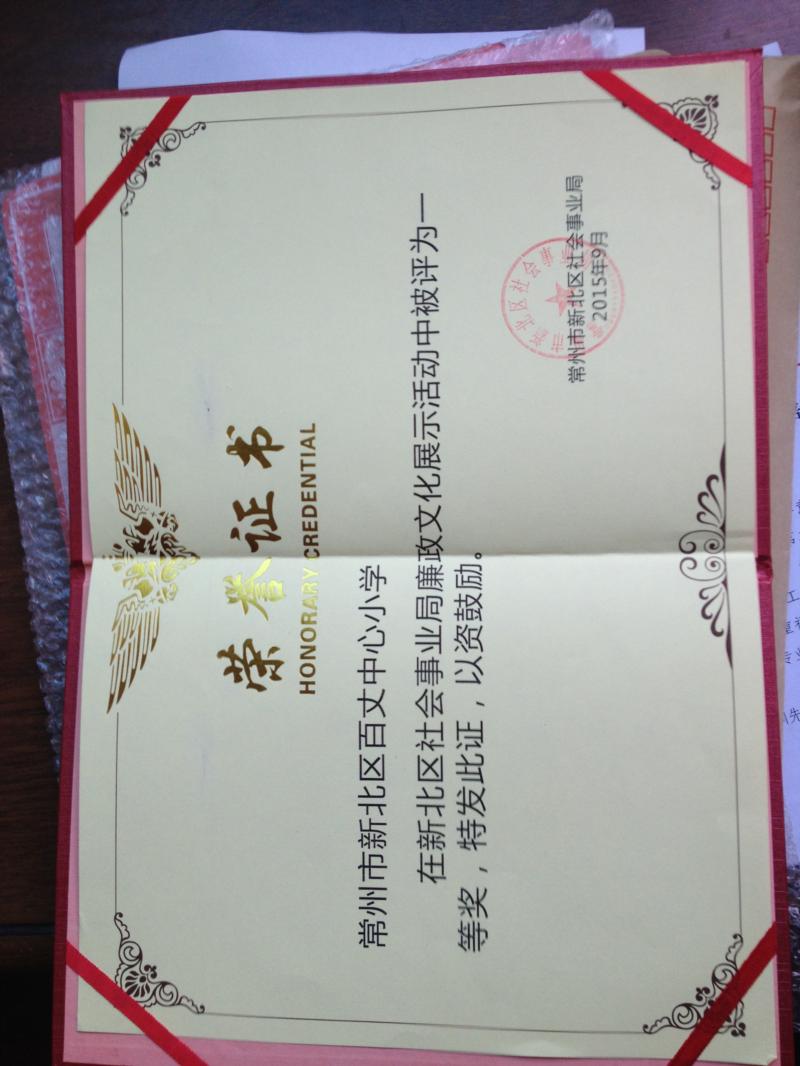 荣誉证书
HONORARY CREDENTIAL
常州市新北区百丈中心小学
在新北区社会事业局廉政文化展示活动中被评为一
等奖，特发此证，以资鼓励。
常州市新北区社会事业局
2015年9月